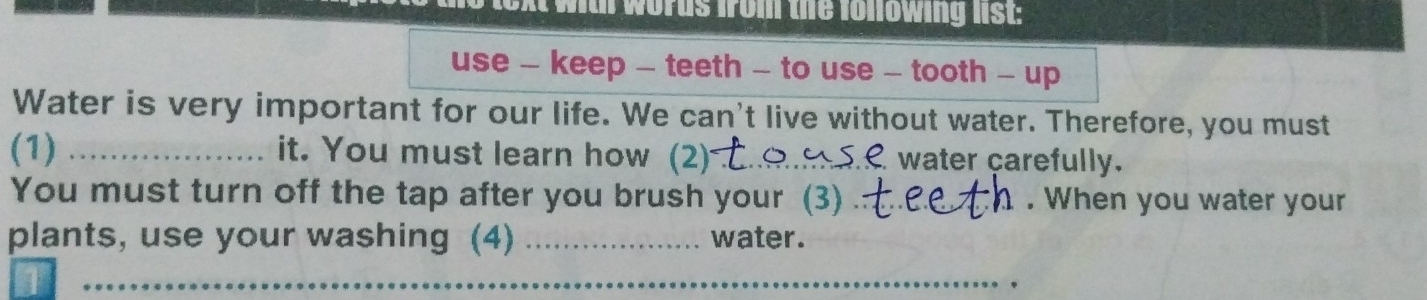 the text with words from the following list:
use – keep – teeth – to use – tooth – up
Water is very important for our life. We can't live without water. Therefore, you must
(1) .................... it. You must learn how (2) to use water carefully.
You must turn off the tap after you brush your (3) teeth . When you water your
plants, use your washing (4) .................. water.
1 ........................................................................................ .